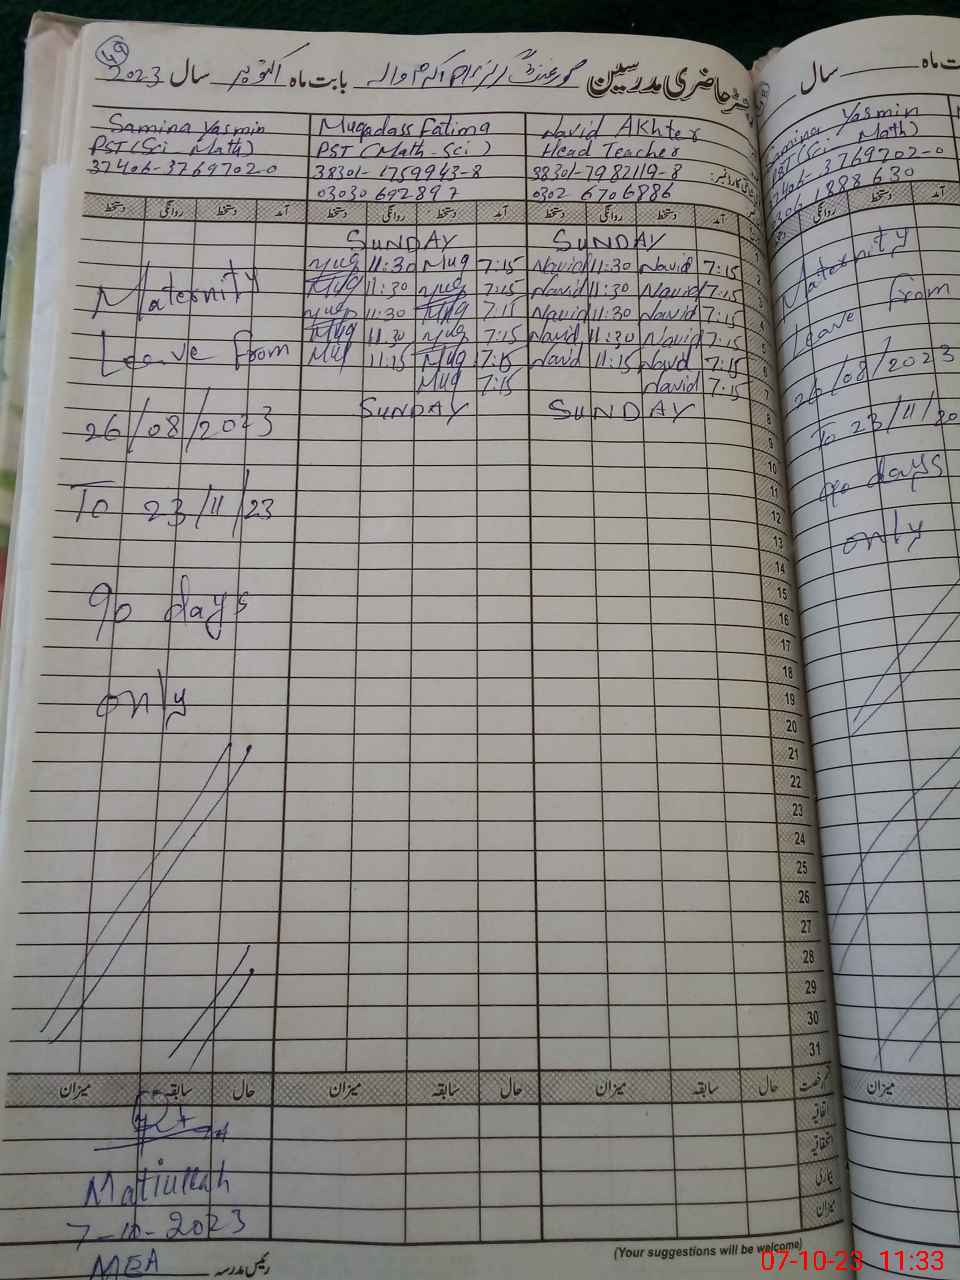 49
رجسٹر حاضری مدرسین گورنمنٹ پرائمری بابت ماہ اکتوبر سال 2023
Samina Yasmin Muqadass Fatima Navid Akhter
PST (Sci Math) PST (Math-Sci) Head Teacher
37406-3769702-0 38301-1759943-8 38301-7982119-8
03030692897 0302 6706886
دستخط روانگی دستخط آمد دستخط روانگی دستخط آمد دستخط روانگی دستخط آمد
SUNDAY SUNDAY 1
Muq 11:30 Muq 7:15 Navid 11:30 Navid 7:15 2
Maternity Muq 11:30 Muq 7:15 Navid 11:30 Navid 7:15 3
Muq 11:30 Muq 7:15 Navid 11:30 Navid 7:15 4
Muq 11:30 Muq 7:15 Navid 11:30 Navid 7:15 5
Leave From Muq 11:15 Muq 7:15 Navid 11:15 Navid 7:15 6
Muq 7:15 Navid 7:15 7
26/08/2023 SUNDAY SUNDAY 8
9
10
11
To 23/11/23 12
13
14
15
90 days 16
17
18
19
only 20
21
22
23
24
25
26
27
28
29
30
31
میزان سابقہ حال میزان سابقہ حال میزان سابقہ حال قسم رخصت
اتفاقیہ
استحقاقیہ
بیماری
میزان
Matiullah
7-10-2023
MEA
رئیس مدرسہ
(Your suggestions will be welcome)
سال
بابت ماہ
Samina Yasmin
PST (Sci. Math)
37406-3769702-0
0306 1888 630
روانگی دستخط آمد
Maternity
Leave From
26/08/2023
To 23/11/20
90 days
only
میزان
07-10-23 11:33